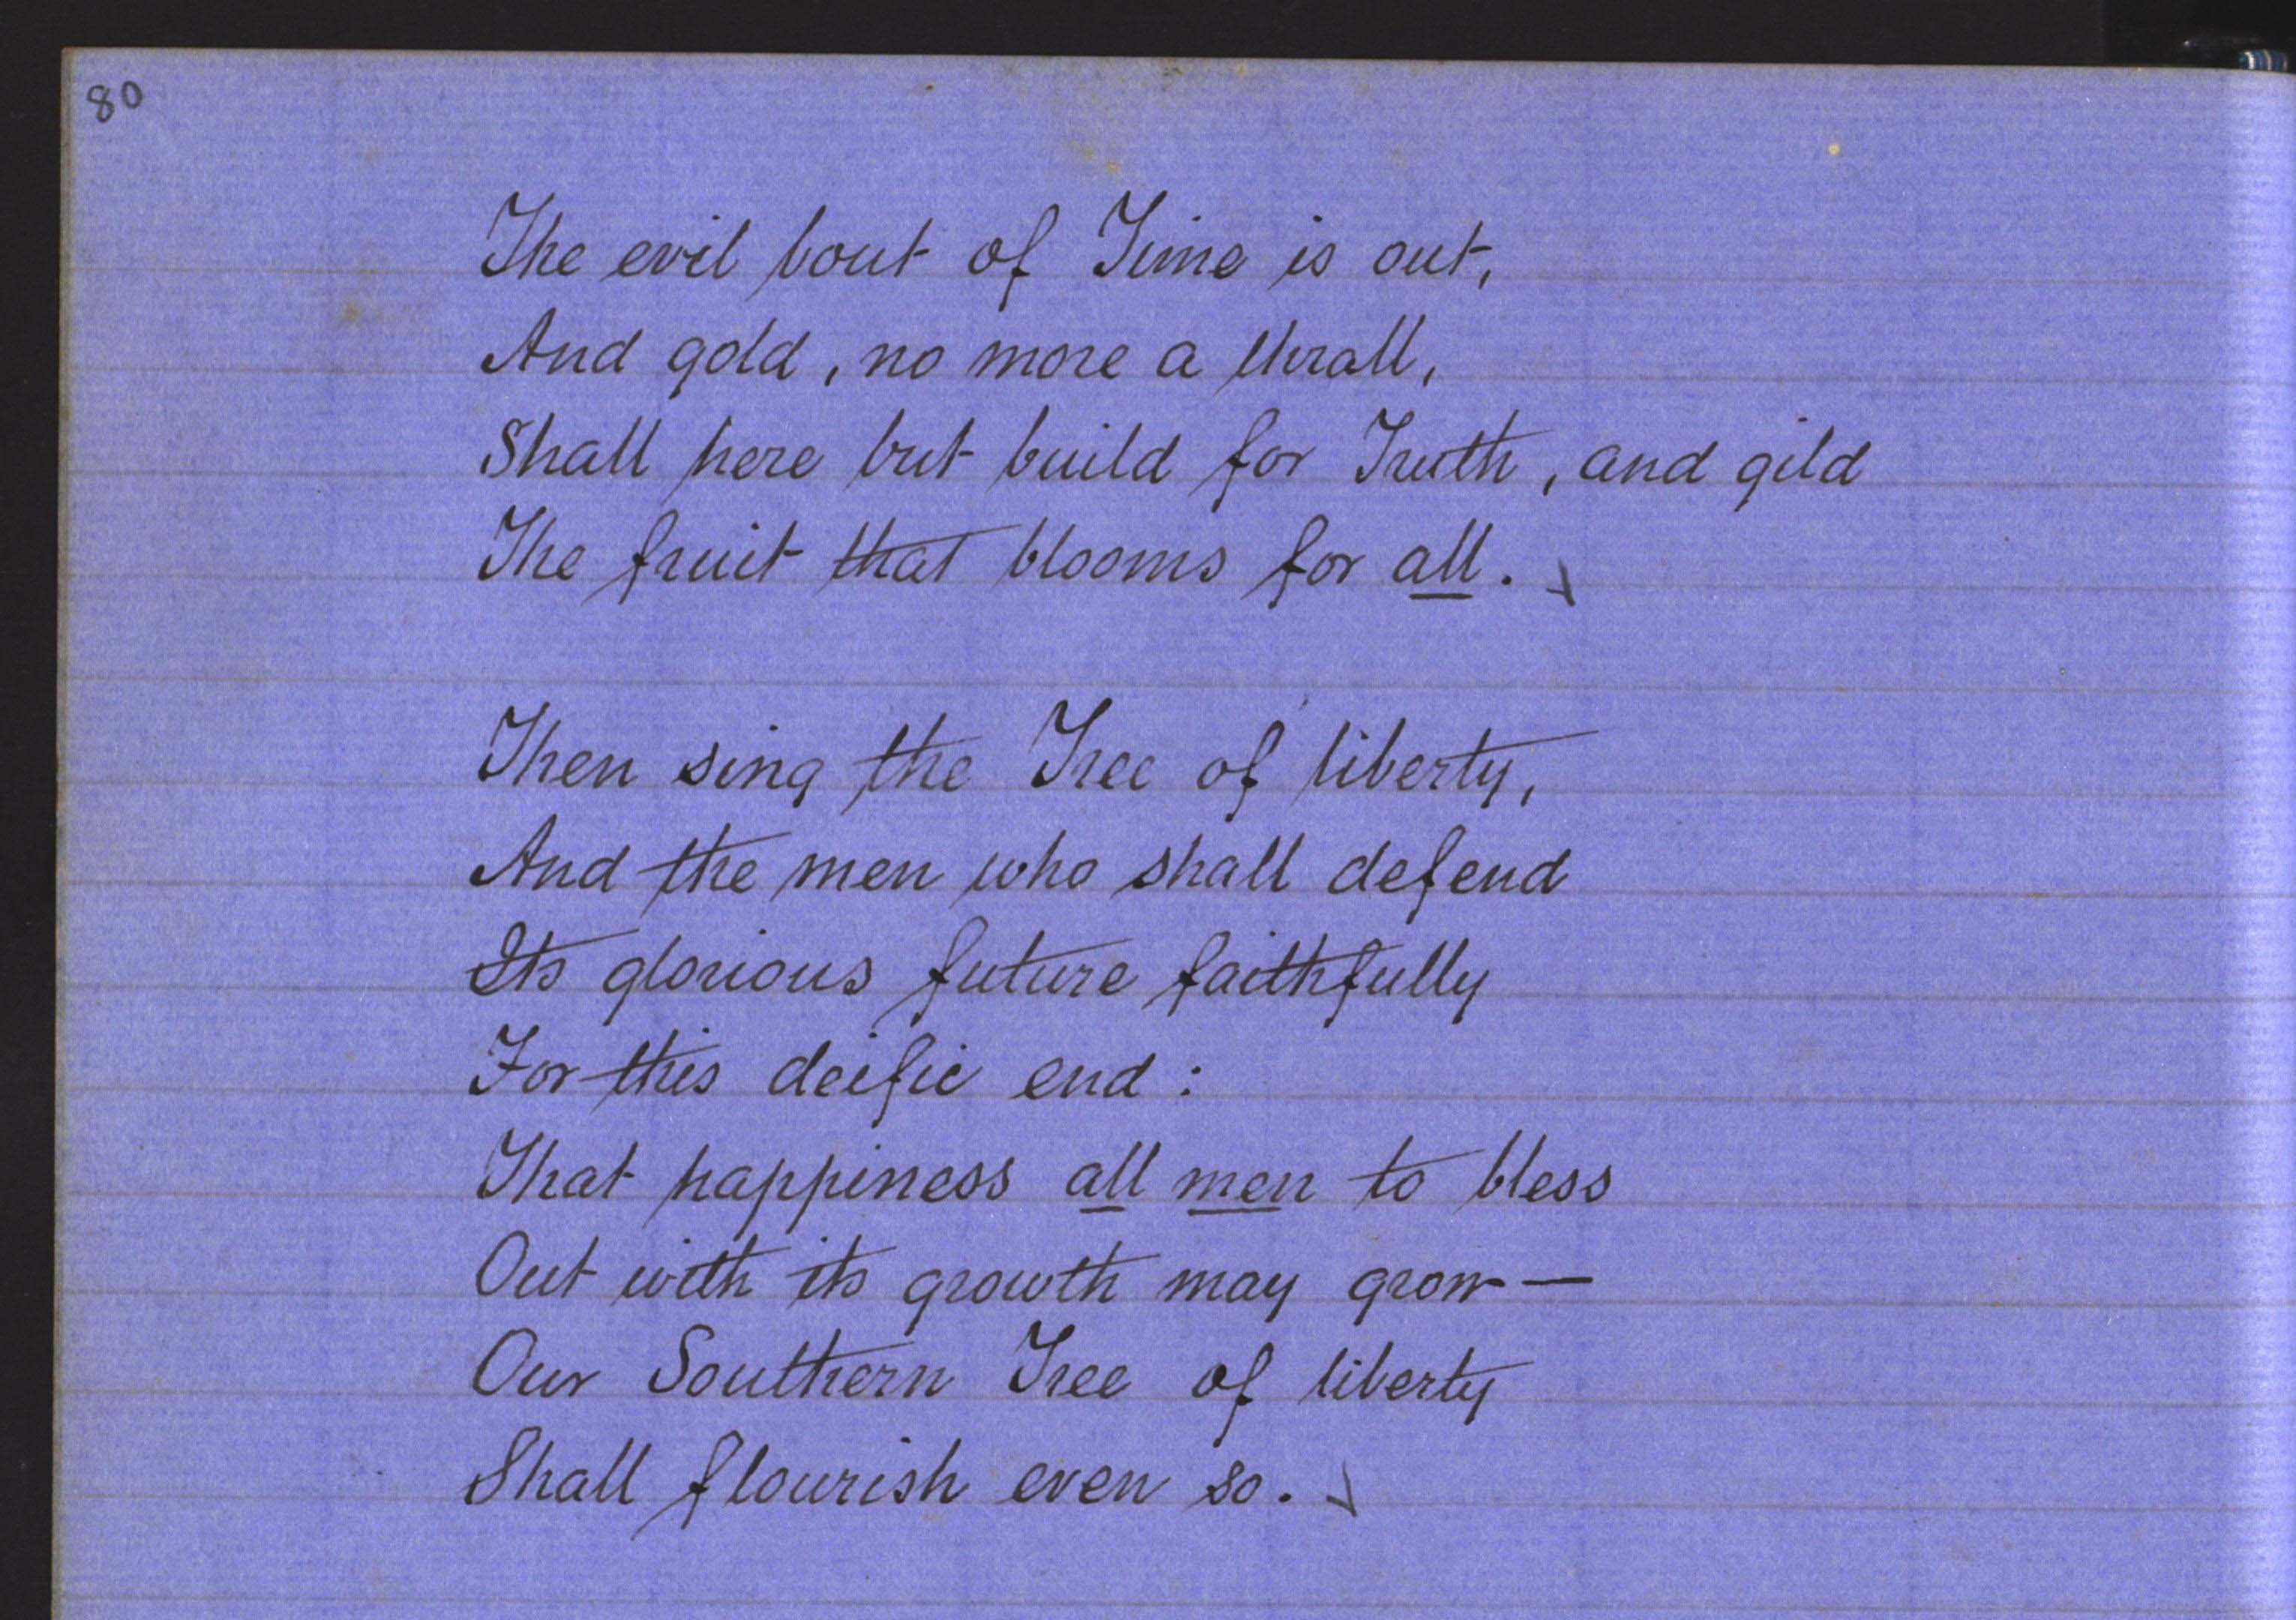 80
The evil bout of Time is out,
And gold, no more a thrall,
Shall here but build for Truth, and gild
The fruit that blooms for all.
Then sing the Tree of liberty,
And the men who shall defend
Its glorious future faithfully
For this deific end:
That happiness all men to bless
Out with its growth may grow—
Our Southern Tree of liberty
Shall flourish even so.